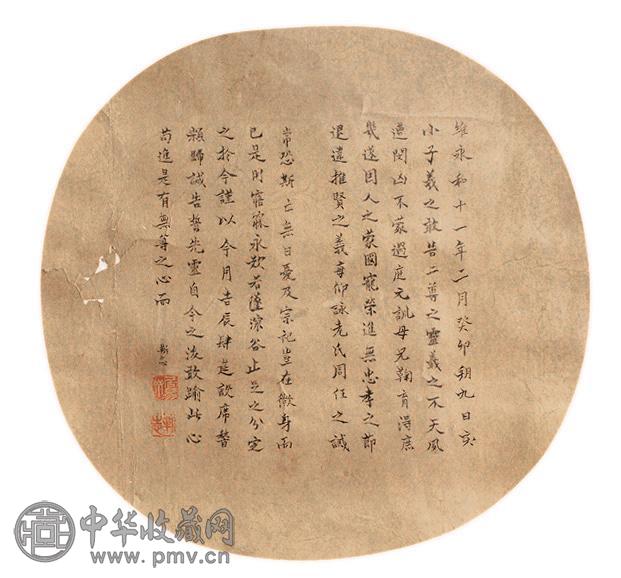 維永和十一年三月癸卯朔九日亥
小子羲之敢告二尊之靈羲之不天夙
遭閔凶不蒙過庭之訓母兄鞠育得庶
幾遂因人之蒙國寵榮進無忠孝之節
退違推賢之義每仰詠老氏周任之誡
常恐斯亡無日憂及宗祀豈在微身而
已是用寤寐永歎若墜深谷止足之分定
之於今謹以今月吉辰肆筵設席稽
顙歸誠告誓先靈自今之後敢踰此心
苟進是有無尊之心而
中华收藏网
www.pmv.cn